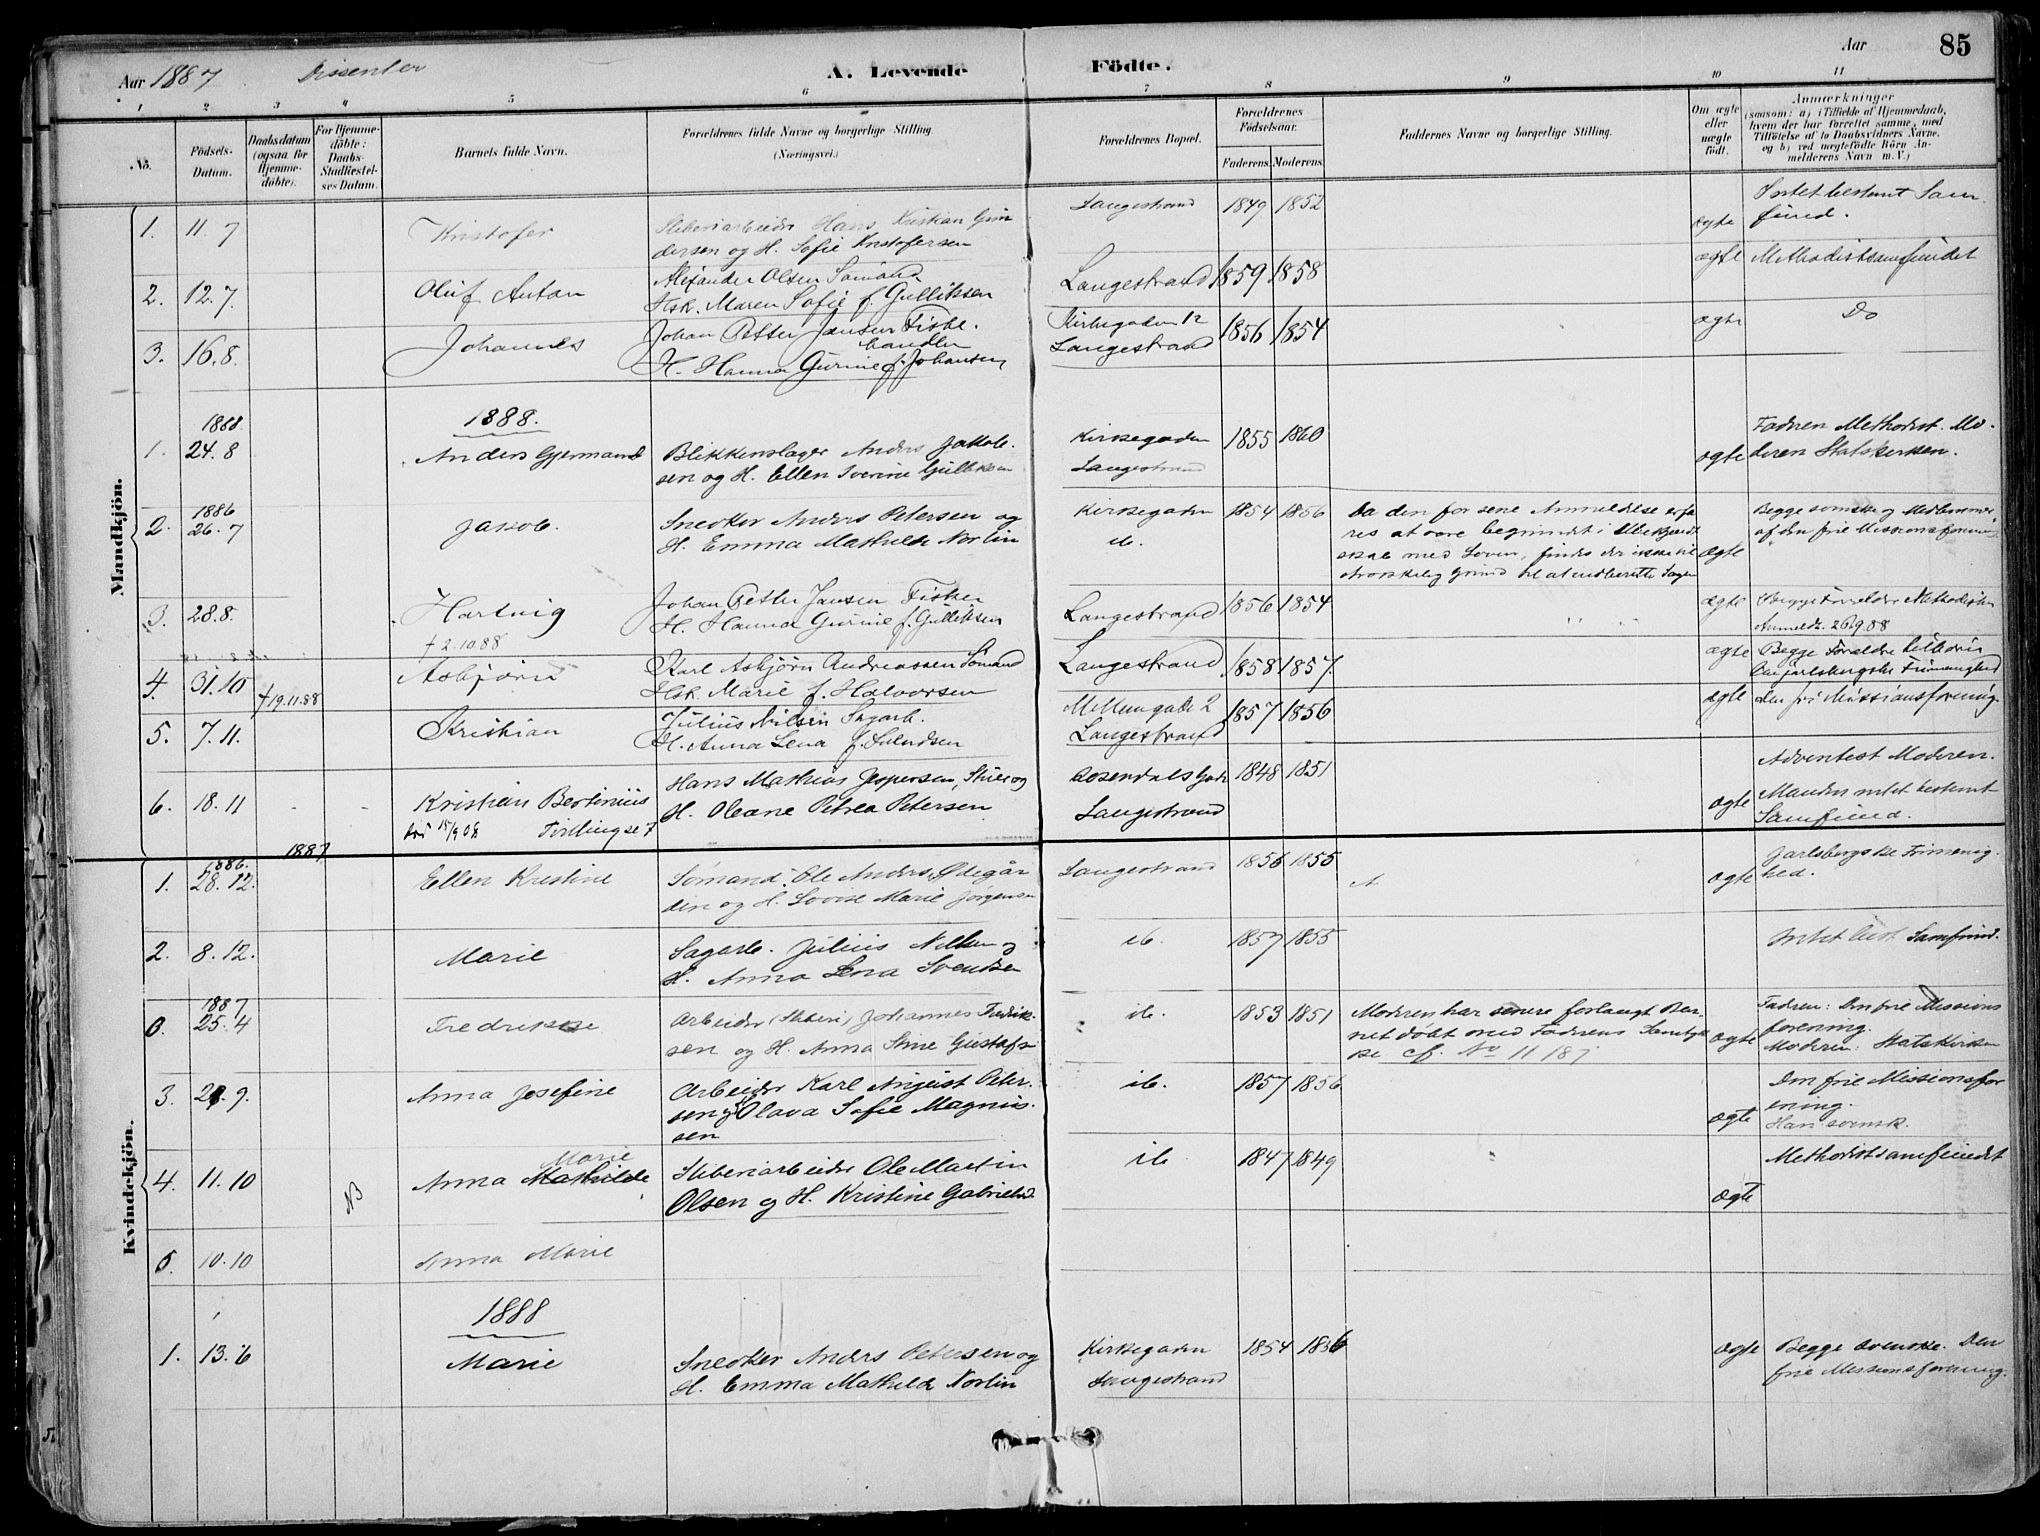 Aar 1887 Dissenter
A. Levende Födte.
Aar 85
1 2 3 4 5 6 7 8 9 10 11
No.
Födsels-Datum.
Daabsdatum (ogsaa for Hjemme-döbte).
For Hjemme-döbte: Daabs-Stadfæstel-ses Datum.
Barnets fulde Navn.
Forældrenes fulde Navne og borgerlige Stilling. (Næringsvei.)
Forældrenes Bopæl.
Forældrenes Födselsaar.
Faderens. Moderens.
Faddernes Navne og borgerlige Stilling.
Om ægte eller uægte födt.
Anmærkninger
(saasom: a) i Tilfælde af Hjemmedaab, hvem der har forrettet samme, med Tilföielse af to Daabsvidners Navne, og b) ved uægtefödte Börn An-melderens Navn m. V.)
Mandkjön.
1. 11.7 Kristofer
Sliberiarbeider Hans Kristian Gun
dersen og H. Sofie Kristofersen
Langestrand 1849 1852 ægte
Intet bestemt Sam
fund.
2. 12.7. Oluf Anton
Alexander Olsen Sömand
Hsk. Maren Sofie f. Gulliksen
Langestrand 1859 1858 ægte Methodistsamfundet
3. 16.8. Johannes
Johan Petter Jansen Fiske.
handler
H. Hanna Gurine f. Johansen
Kirkegaden 12
Langestrand 1856 1854 ægte Do
1888.
1888
1. 24.8 Anders Gjermand
Blikkenslager Anders Jakob.
sen og H. Ellen Severine Gulliksen
Kirkegaden
Langestrand 1855 1860 ægte
Fadren Methodist. Mo-
deren Statskirken.
1886
2. 26.7 Jakob.
Snedker Anders Petersen og
H. Emma Mathilde Norlin
Kirkegaden
ib. 1854 1856
Da den for sene Anmeldelse erfa
res at være begrundet i Ubekjendt
skab med Loven, findes der ikke til
strækkelig Grund til at indberette Sagen
ægte
Begge svenske og Medlemmer
af den frie Missionsforening
3. 28.8. Hartvig
† 2.10.88
Johan Petter Jansen Fisker
H. Hanna Gurine f. Gulliksen
Langestrand 1856 1854 ægte
Begge Forældre Methodister
Anmeldt. 26/9.88
4. 31.10 † 19.11.88 Asbjörn
Karl Asbjörn Andreassen Sömand
Hsk. Marie f. Halvorsen
Langestrand 1858 1857. ægte
Begge Forældre tilhører
den jarlsbergske Frimenighed
5. 7.11. Kristian
Julius Nilsen Sagarb.
H. Anna Lena f. Svendsen
Mellemgade 2
Langestrand 1857 1856 ægte den fri Missionsforening
6. 18.11 - - Kristian Bertinius
Hans Mathias Jespersen,
H. Oleane Petrea Petersen
Rosendalsgade
Langestrand 1848 1851 ægte
Adventist Moderen.
Manden intet bestemt
Samfund.
Kvindekjön.
1887
1886.
1. 28.12. Ellen Kristine
Sömand Ole Anders. Ødegår
den og H. Lovise Marie Jörgensen
Langestrand 1856 1855 ægte
Jarlsbergske Frimenig-
hed.
2. 8.12. Marie
Sagarb. Julius Nilsen og
H. Anna Lena Svendsen
ib. 1857 1855
Intet best Samfund.
1887
0. 25.4 Fredrikke
Arbeider (Sliberi) Johannes Fredrik-
sen og H. Anna Stine Gustafs
ib. 1853 1851
Moderen har senere forlangt Bar-
net döbt med Fadrens Samtyk
ke cf. No 11 187
ægte
Fadren: Den frie Missions
forening.
Moderen: Statskirken
3. 28.9. Anna Josefine
Arbeider Karl August Peter-
sen og Olava Sofie Magnus-
sen
ib. 1857 1856 ægte
Den frie Missionsfor
ening.
Han svensk.
4. 11.10 NB Anna Mathilde
Marie
Sliberiarbeider Ole Martin
Olsen og H. Kristine Gabrielsd
ib 1847 1849 ægte Methodistsamfundet
5. 10.10 Anna Marie
1888
1. 13.6 Marie
Snedker Anders Petersen og
H. Emma Mathilde Norlin
Kirkegaden
Langestrand 1854 1856 ægte
Begge svenske. Den
frie Missionsforening.